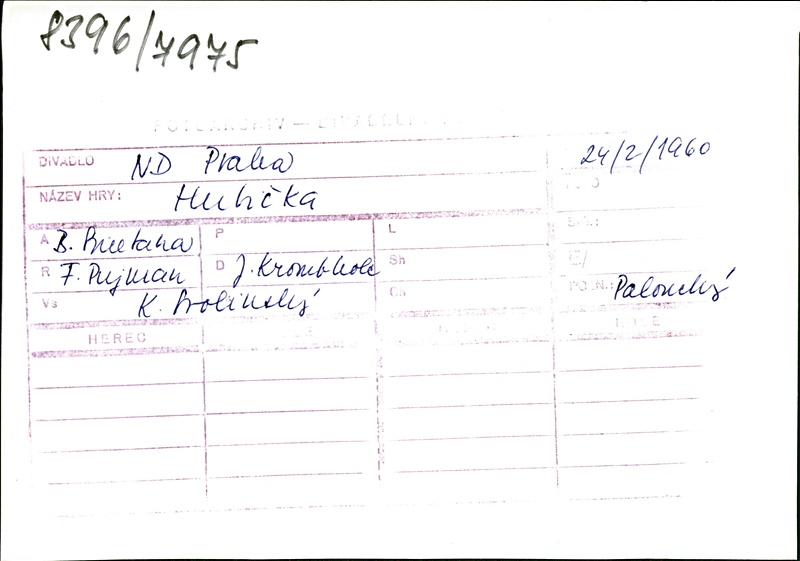 8396/7975
FOTOARCHIV — DIVADELNÍ
DIVADLO ND Praha 24/2/1960
NÁZEV HRY: Hubička
A B. Smetana P L
R F. Pujman D J. Krombholc Sh
Vs K. Svolinský Ch POZN.: Palouchý
HEREC ROLE